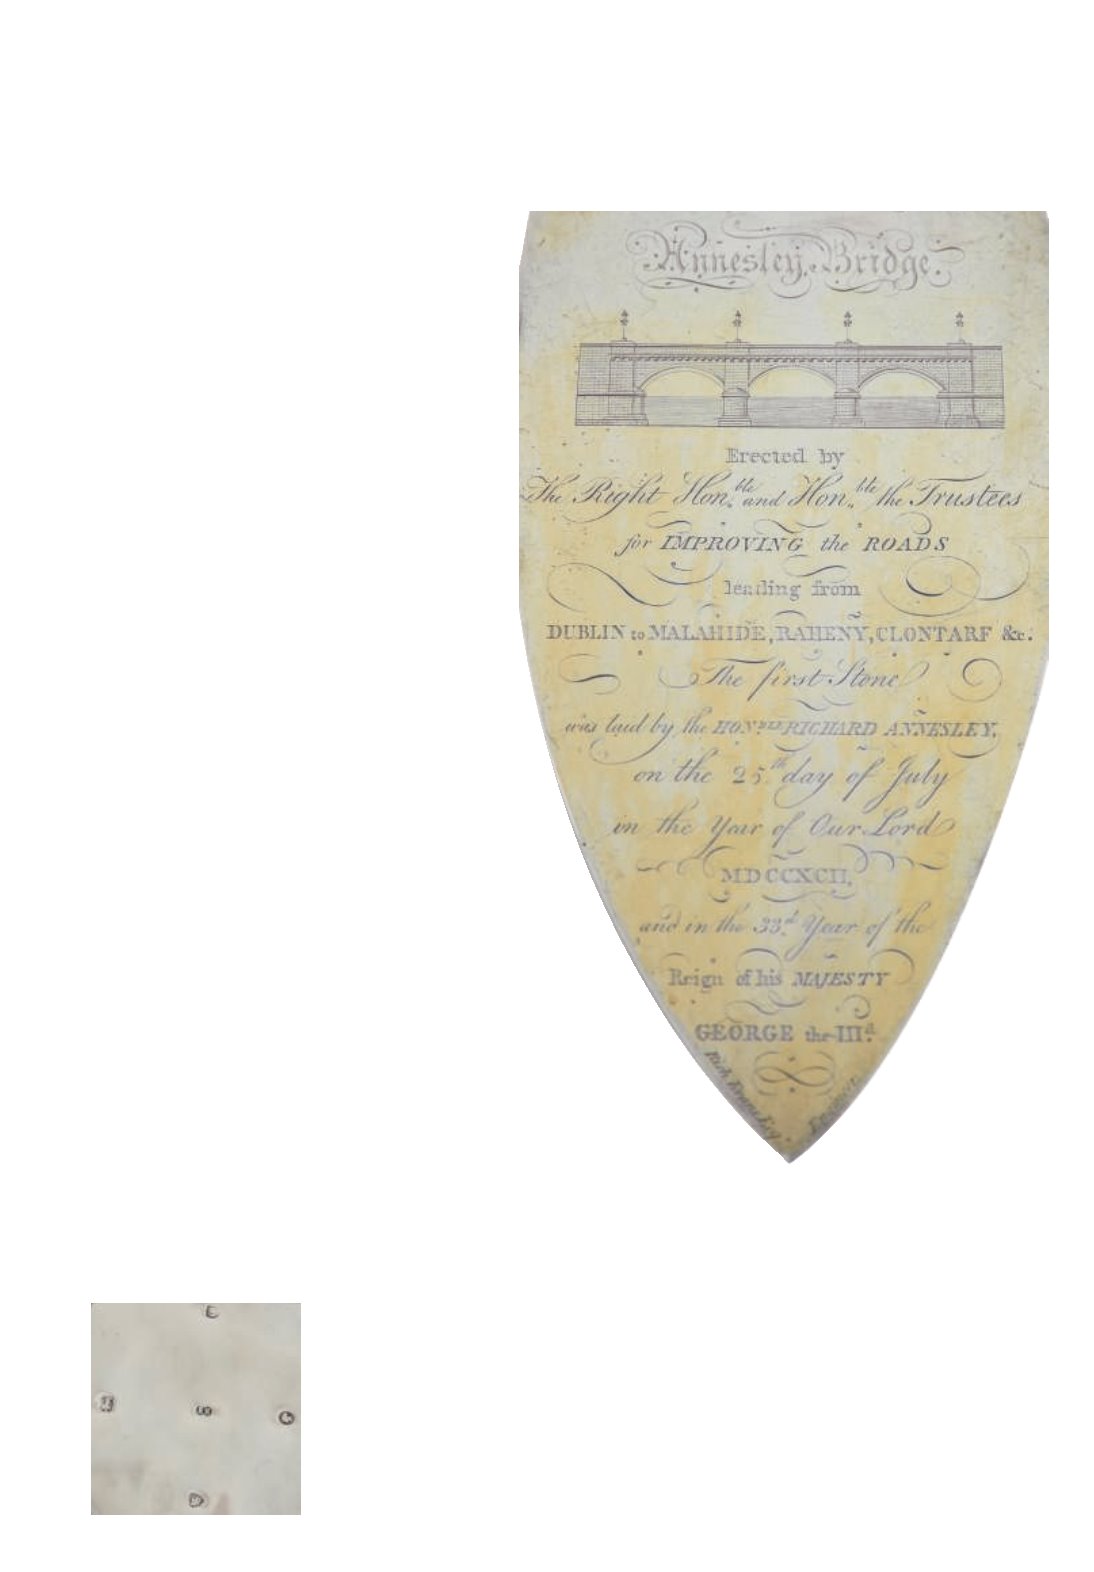 Annesley Bridge.
Erected by
The Right Hon.ble and Hon.ble the Trustees
for IMPROVING the ROADS
leading from
DUBLIN to MALAHIDE, RAHENY, CLONTARF &c.
The first Stone
was laid by the HON.BLE RICHARD ANNESLEY,
on the 25.th day of July
in the Year of Our Lord
MDCCXCII,
and in the 33.d Year of the
Reign of his MAJESTY
GEORGE the III.d
Rich. Evans Esq.
Engineer